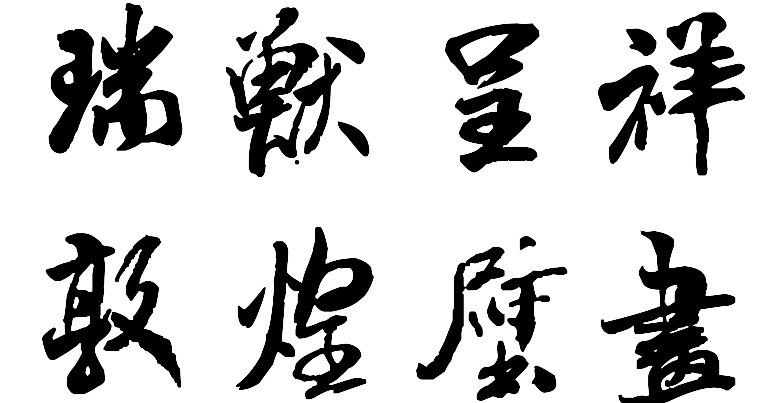 瑞獸呈祥
敦煌壁畫